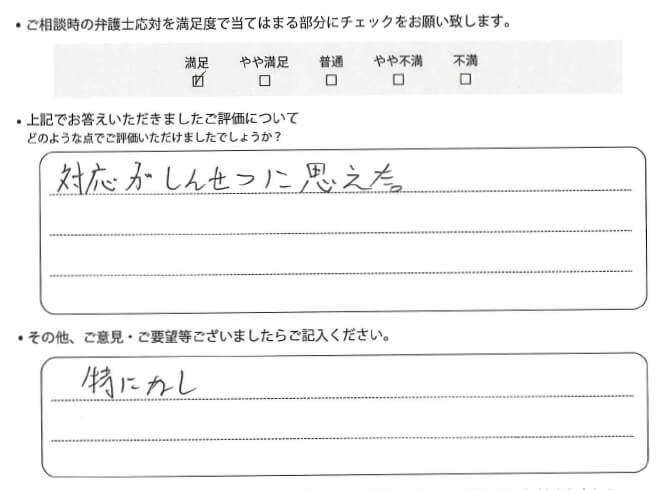 ・ご相談時の弁護士応対を満足度で当てはまる部分にチェックをお願い致します。
満足 やや満足 普通 やや不満 不満
☑ □ □ □ □
・上記でお答えいただきましたご評価について
どのような点でご評価いただけましたでしょうか？
対応がしんせつに思えた。
・その他、ご意見・ご要望等ございましたらご記入ください。
特になし